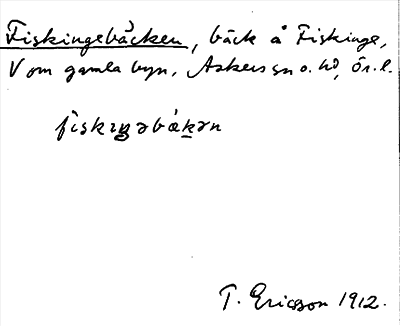 Fiskingebäcken, bäck å Fiskinge,
V om gamla byn, Askers sn o. hd, Ör. l.
fìskıŋəbǽkən
T. Ericsson 1912.